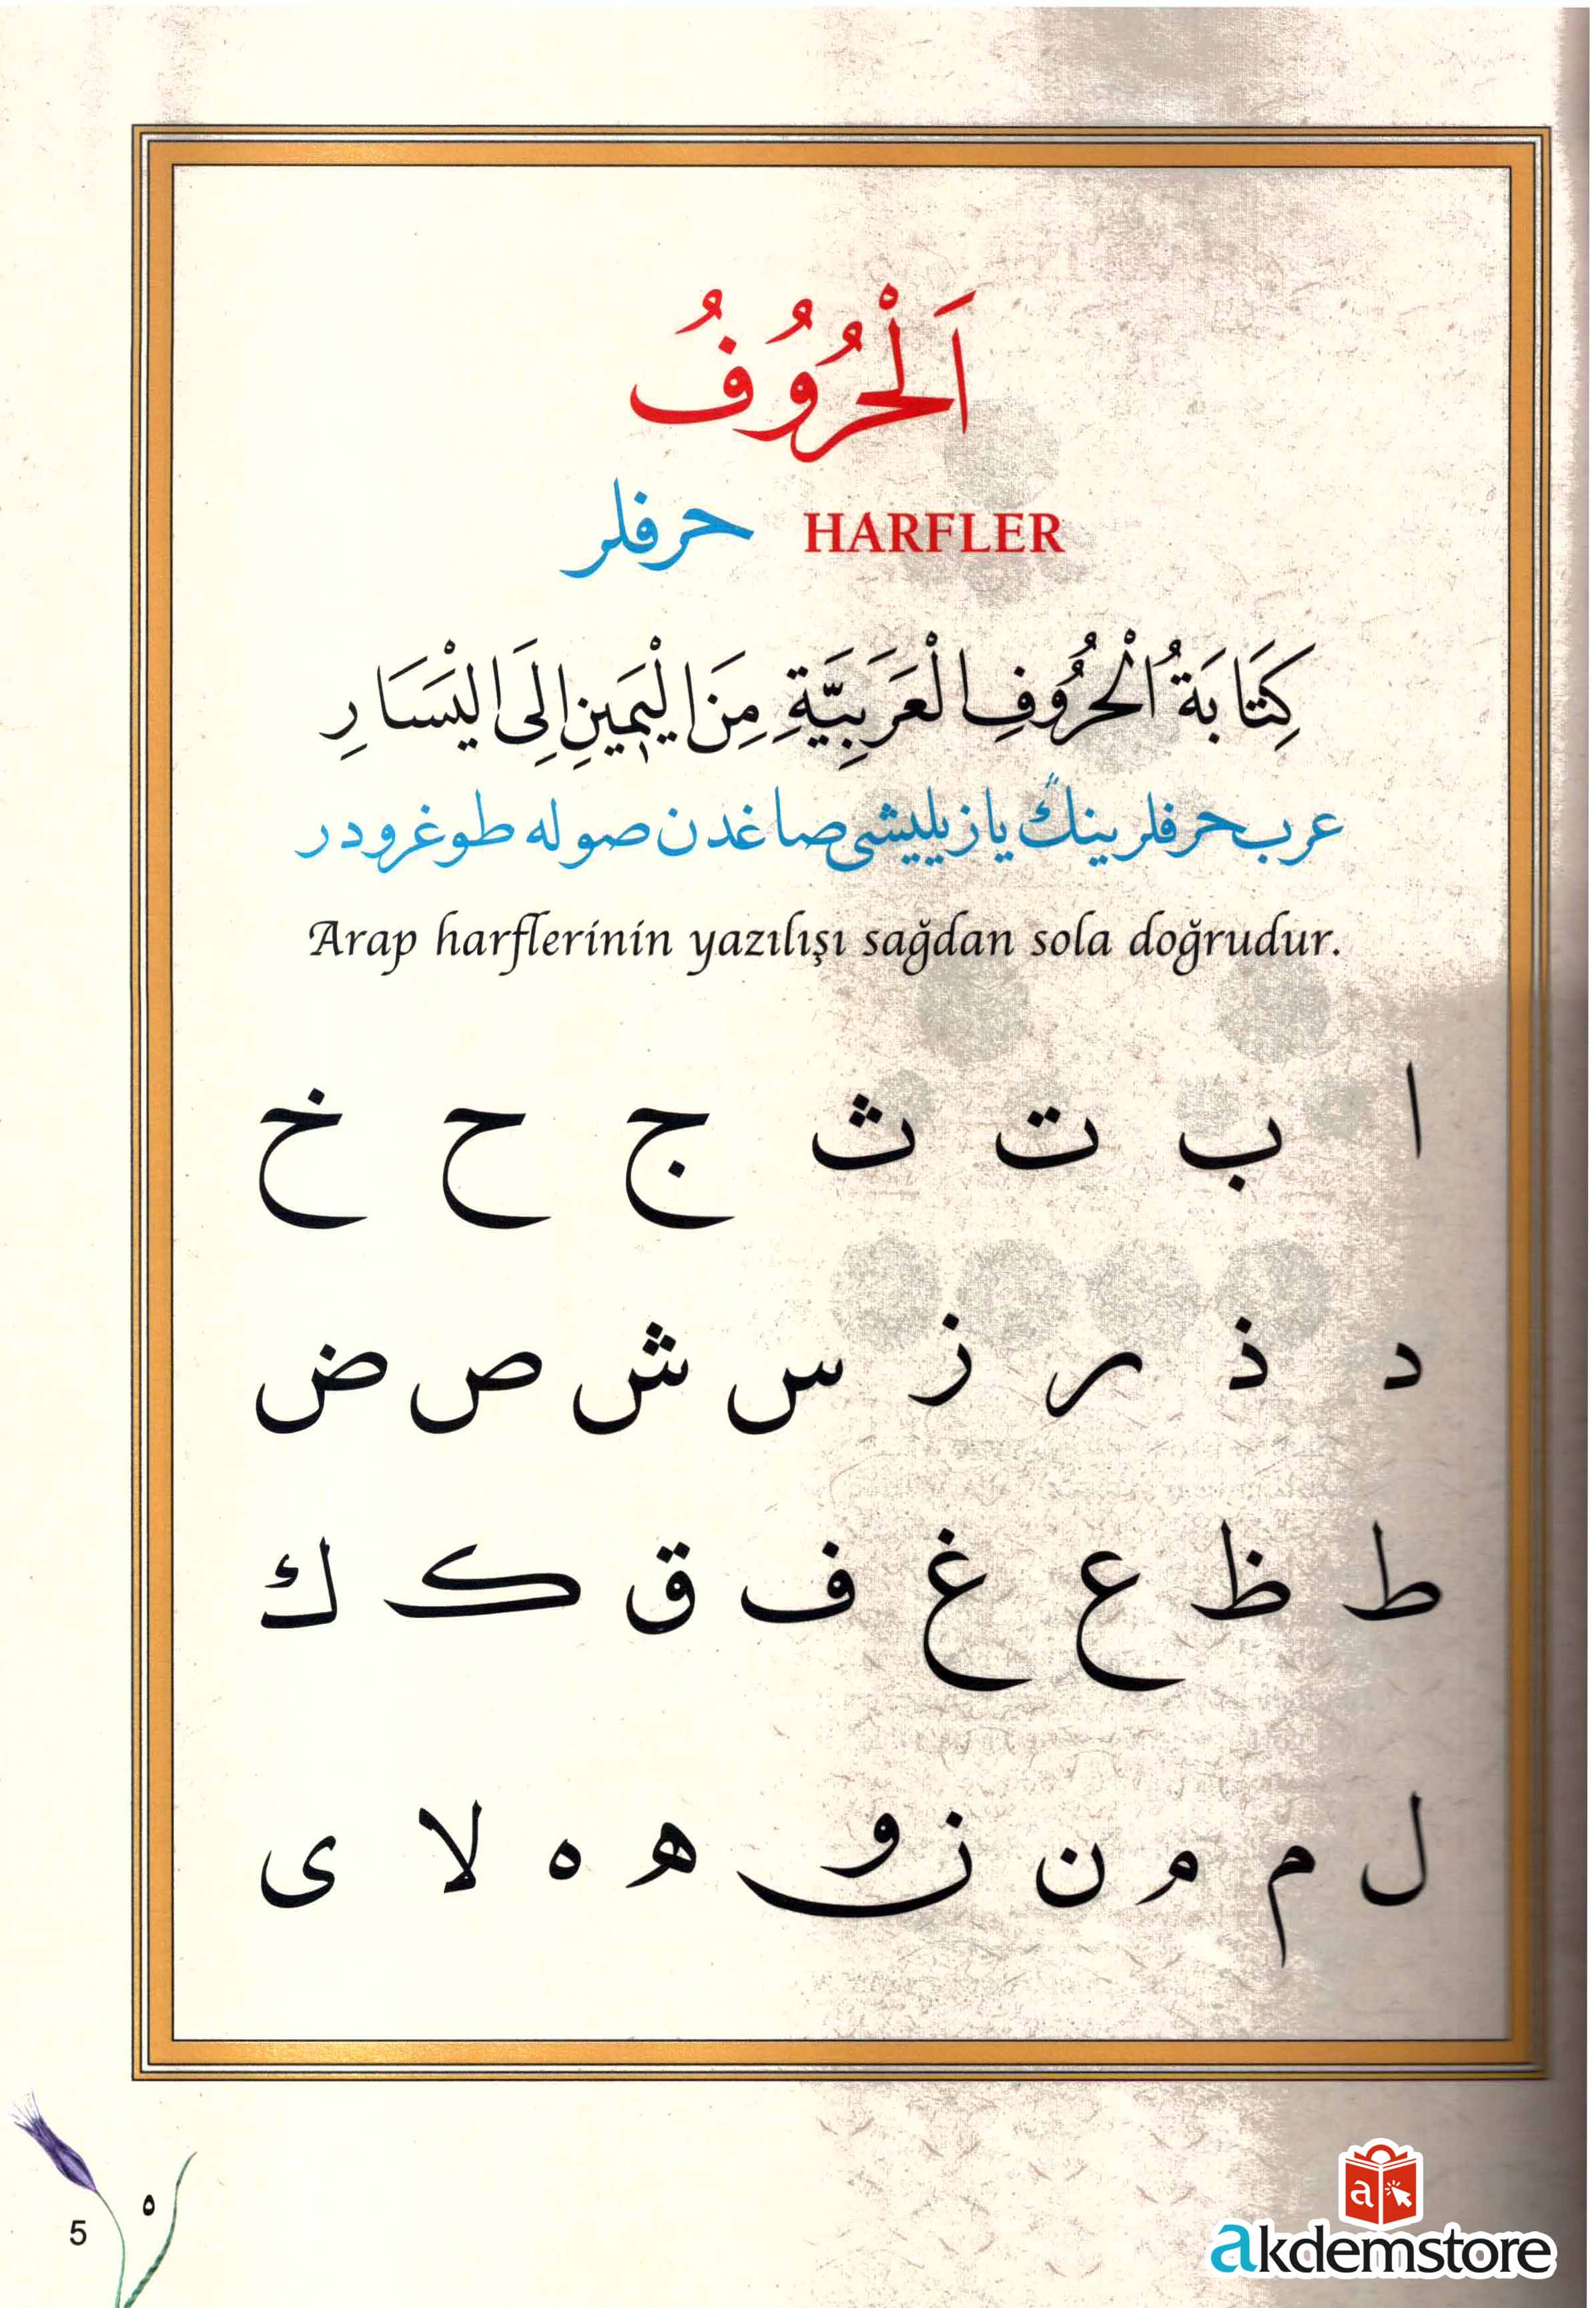 اَلْحُرُوُفُ
HARFLER حرفلر
كِتَابَةُ الْحُرُوفِ الْعَرَبِيَّةِ مِنَ الْيَمٖينِ اِلَى الْيَسَارِ
عرب حرفلرينڭ يازيليشى صاغدن صوله طوغرودر
Arap harflerinin yazılışı sağdan sola doğrudur.
ا ب ت ث ج ح خ
د ذ ر ز س ش ص ض
ط ظ ع غ ف ق ک ك
ل م م ن ن و ه ه لا ى
٥
5
a
akdemstore